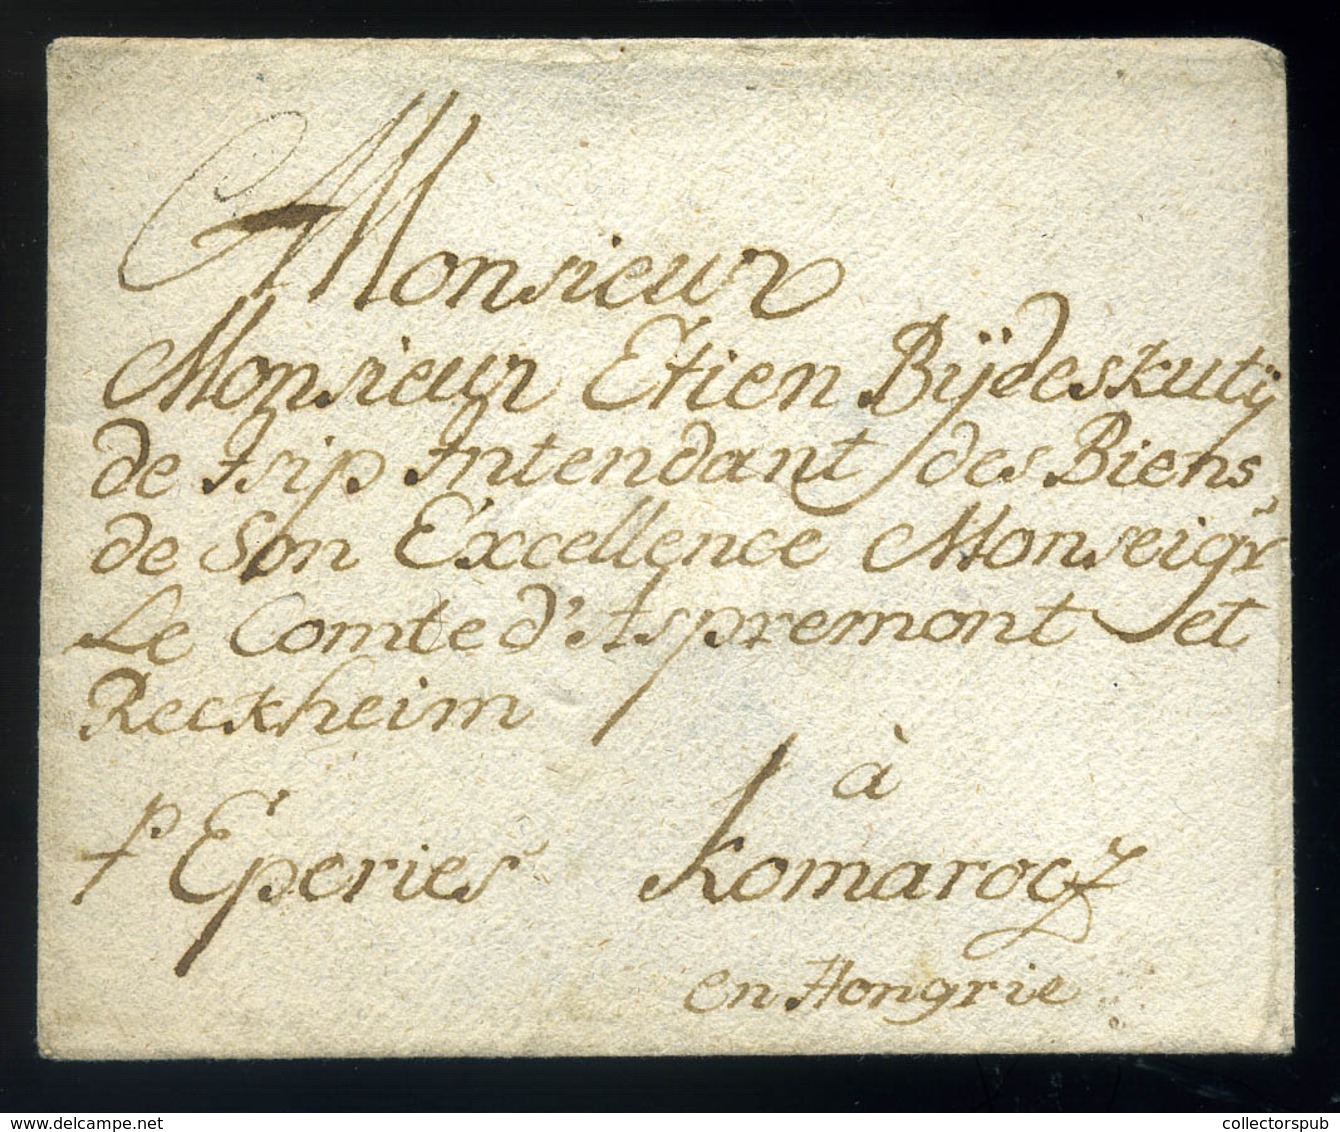 Monsieur
Monsieur Etien Bÿdeskutÿ
de Isip Intendant des Biens
de Son Excellence Monseigr
Le Comte d'Aspremont et
Reckheim
à
pr Eperies Komarocz
en Hongrie
www.delcampe.net
collectorspub